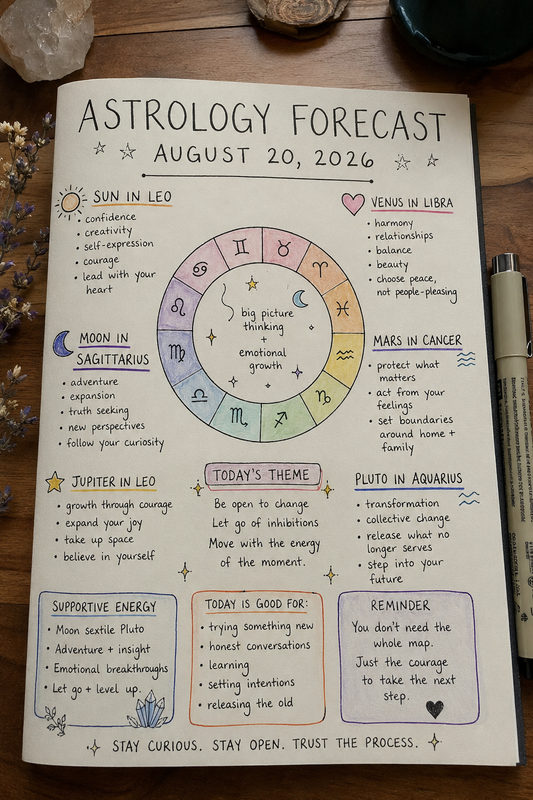 ASTROLOGY FORECAST
AUGUST 20, 2026
SUN IN LEO
• confidence
• creativity
• self-expression
• courage
• lead with your
heart
VENUS IN LIBRA
• harmony
• relationships
• balance
• beauty
• choose peace,
not people-pleasing
♊
♉
♈
♓
♒
♑
♐
♏
♎
♍
♌
♋
big picture
thinking
+
emotional
growth
MOON IN
SAGITTARIUS
• adventure
• expansion
• truth seeking
• new perspectives
• follow your curiosity
MARS IN CANCER
• protect what
matters
• act from your
feelings
• set boundaries
around home +
family
JUPITER IN LEO
• growth through courage
• expand your joy
• take up space
• believe in yourself
TODAY'S THEME
Be open to change
Let go of inhibitions
Move with the energy
of the moment.
PLUTO IN AQUARIUS
• transformation
• collective change
• release what no
longer serves
• step into your
future
SUPPORTIVE ENERGY
• Moon sextile Pluto
• Adventure + insight
• Emotional breakthroughs
• Let go + level up.
TODAY IS GOOD FOR:
• trying something new
• honest conversations
• learning
• setting intentions
• releasing the old
REMINDER
You don't need the
whole map.
Just the courage
to take the next
step.
STAY CURIOUS. STAY OPEN. TRUST THE PROCESS.